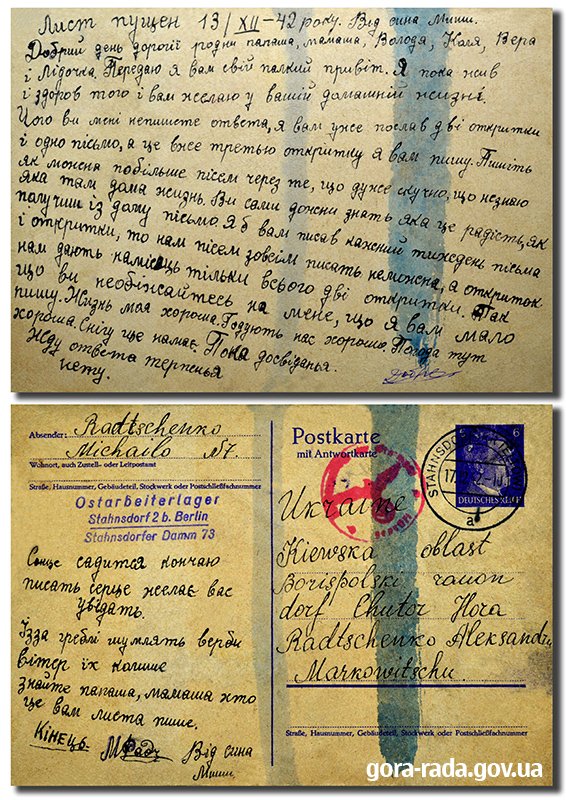 Лист пущен 13/XII-42 року. Від сина Миши.
Добрий день дорогії родни папаша, мамаша, Володя, Каля, Вера
і Лідочка. Передаю я вам свій палкий привіт. Я пока жив
і здоров того і вам желаю у вашій домашній жизні.
Чого ви мені непишете ответа, я вам уже послав дві откритки
і одно пісьмо, а це вже третью откритку я вам пишу. Пишіть
як можна побільше пісем через те, що дуже скучно, що незнаю
яка там дома жизнь. Ви сами дожни знать яка це радість, як
получиш із дому пісьмо. Я б вам писав кажний тиждень пісьма
і откритки, то нам пісем зовсім писать неможна, а откриток
нам дають намісяць тільки всього дві откритки. Так
що ви необіжайтесь на мене, що я вам мало
пишу. Жизнь моя хороша. Годують нас хорошо. Погода тут
хороша. Снігу ще намає. Пока досвіданья.
Жду ответа терпенья
нету.
Absender: Radtschenko
Michailo N7.
Wohnort, auch Zustell- oder Leitpostamt
Straße, Hausnummer, Gebäudeteil, Stockwerk oder Postschließfachnummer
Ostarbeiterlager
Stahnsdorf 2 b. Berlin
Stahnsdorfer Damm 73
Сонце садится кончаю
писать серце желає вас
увідать.
Ізза греблі шумлять верби
вітер їх колише
знайте папаша, мамаша хто
це вам листа пише.
Кінець. МРадч Від сина
Миши.
Postkarte
mit Antwortkarte
STAHNSDORF
a
6
DEUTSCHES REICH
Ukraine
Kiewska oblast
Borispolski raion
dorf Chutor Hora
Radtschenko Aleksandru
Markowitschu.
Straße, Hausnummer, Gebäudeteil, Stockwerk oder Postschließfachnummer
gora-rada.gov.ua